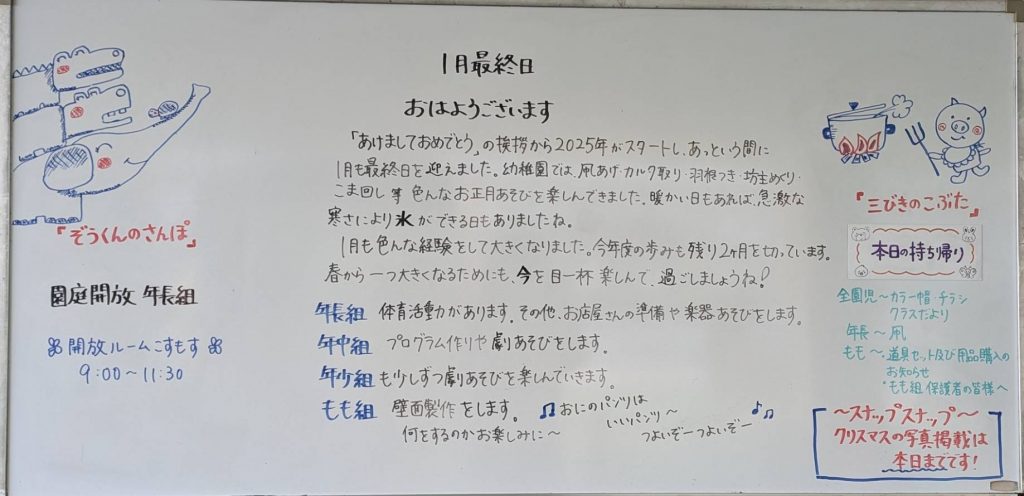 1月最終日
おはようございます
「あけましておめでとう」の挨拶から2025年がスタートし、あっという間に
1月も最終日を迎えました。幼稚園では、凧あげ・カルタ取り・羽根つき・坊主めくり・
こま回し等 色んなお正月あそびを楽しんできました。暖かい日もあれば、急激な
寒さにより氷ができる日もありましたね。
1月も色んな経験をして大きくなりました。今年度の歩みも残り2ヶ月を切っています。
春から一つ大きくなるためにも、今を目一杯楽しんで、過ごしましょうね!
年長組 体育活動があります。その他、お店屋さんの準備や楽器あそびをします。
年中組 プログラム作りや劇あそびをします。
年少組 も少しずつ劇あそびを楽しんでいきます。
もも組 壁面製作をします。
何をするのかお楽しみに〜
♫おにのパンツは
いいパンツ〜
つよいぞーつよいぞー♪♫
『ぞうくんのさんぽ』
園庭開放 年長組
開放ルームこすもす
9:00〜11:30
『三びきのこぶた』
本日の持ち帰り
全園児〜カラー帽・チラシ
クラスだより
年長〜凧
もも〜道具セット及び用品購入の
お知らせ
*もも組 保護者の皆様へ
〜スナップスナップ〜
クリスマスの写真掲載は
本日までです!